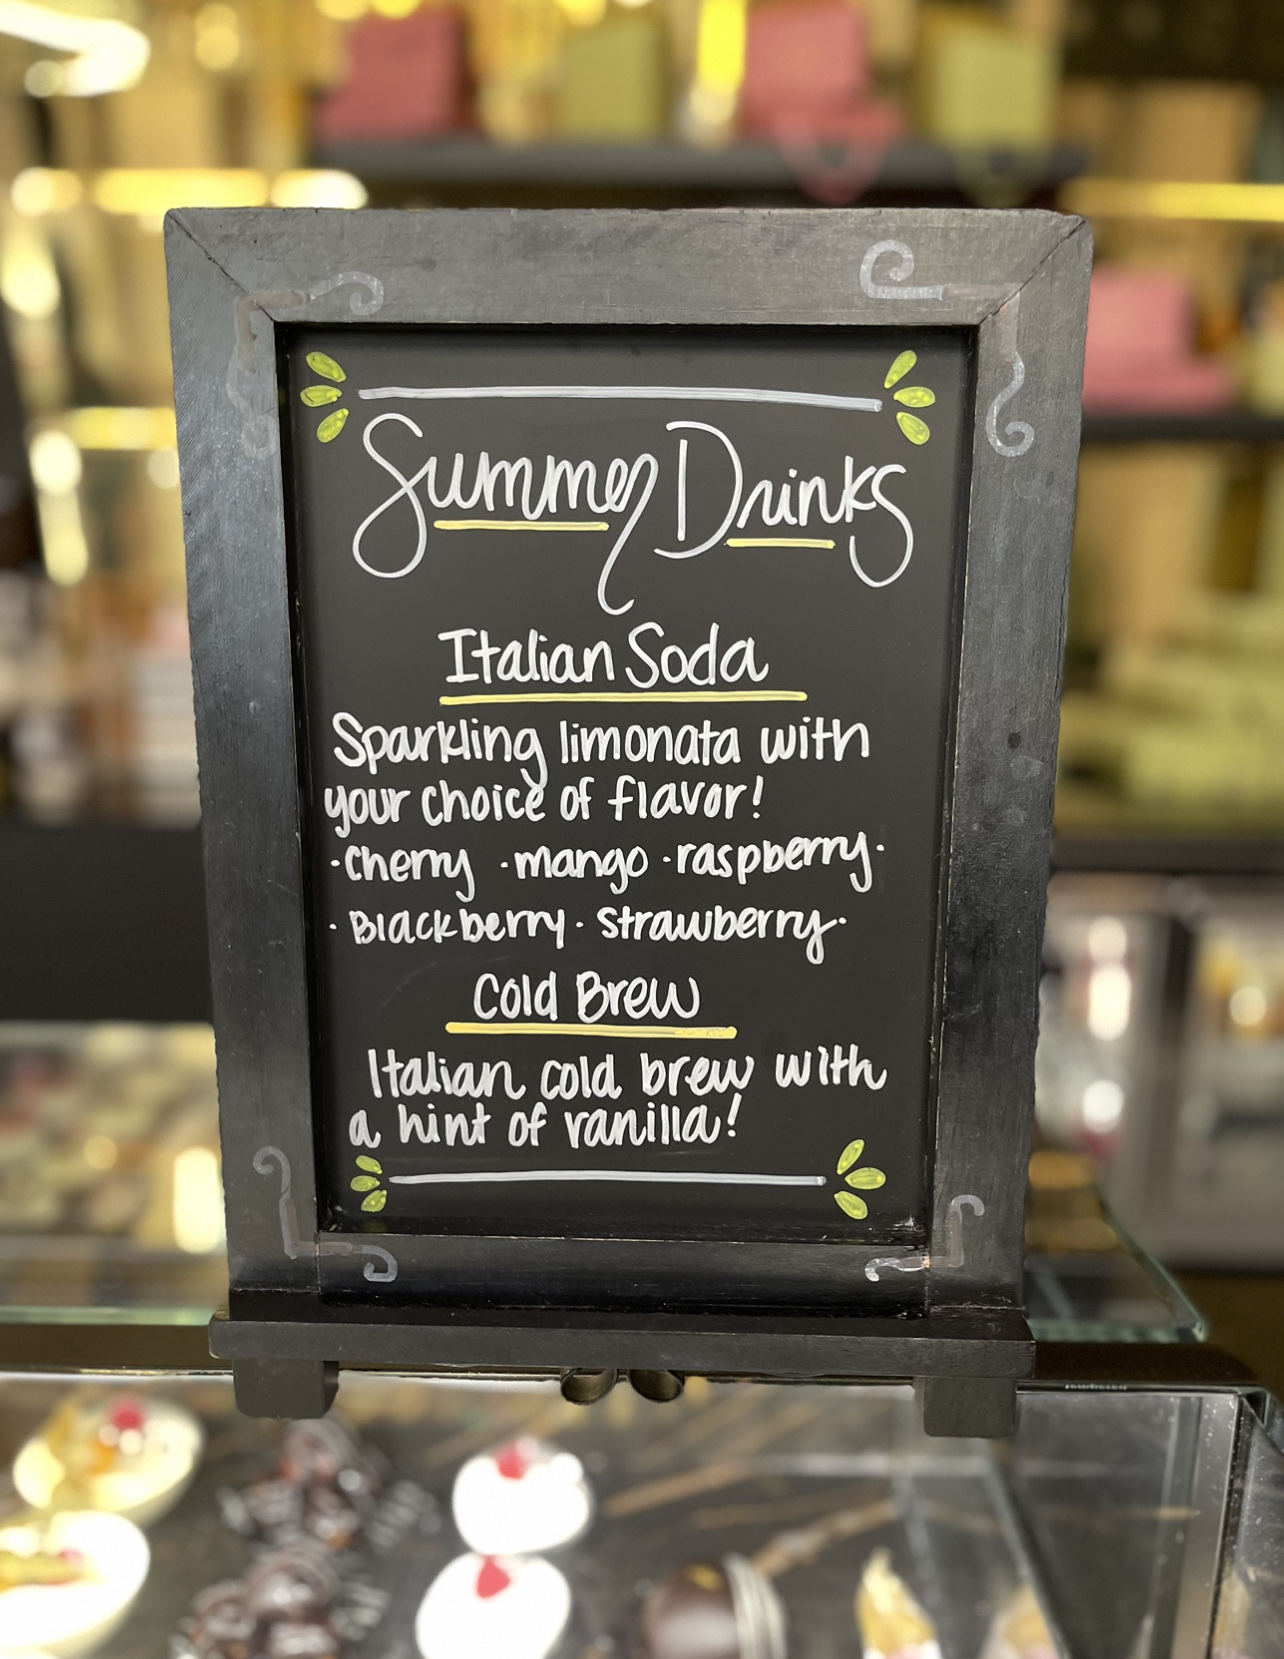 Summer Drinks
Italian Soda
Sparkling limonata with
your choice of flavor!
·Cherry ·mango ·raspberry·
·Blackberry· Strawberry·
Cold Brew
Italian cold brew with
a hint of vanilla!